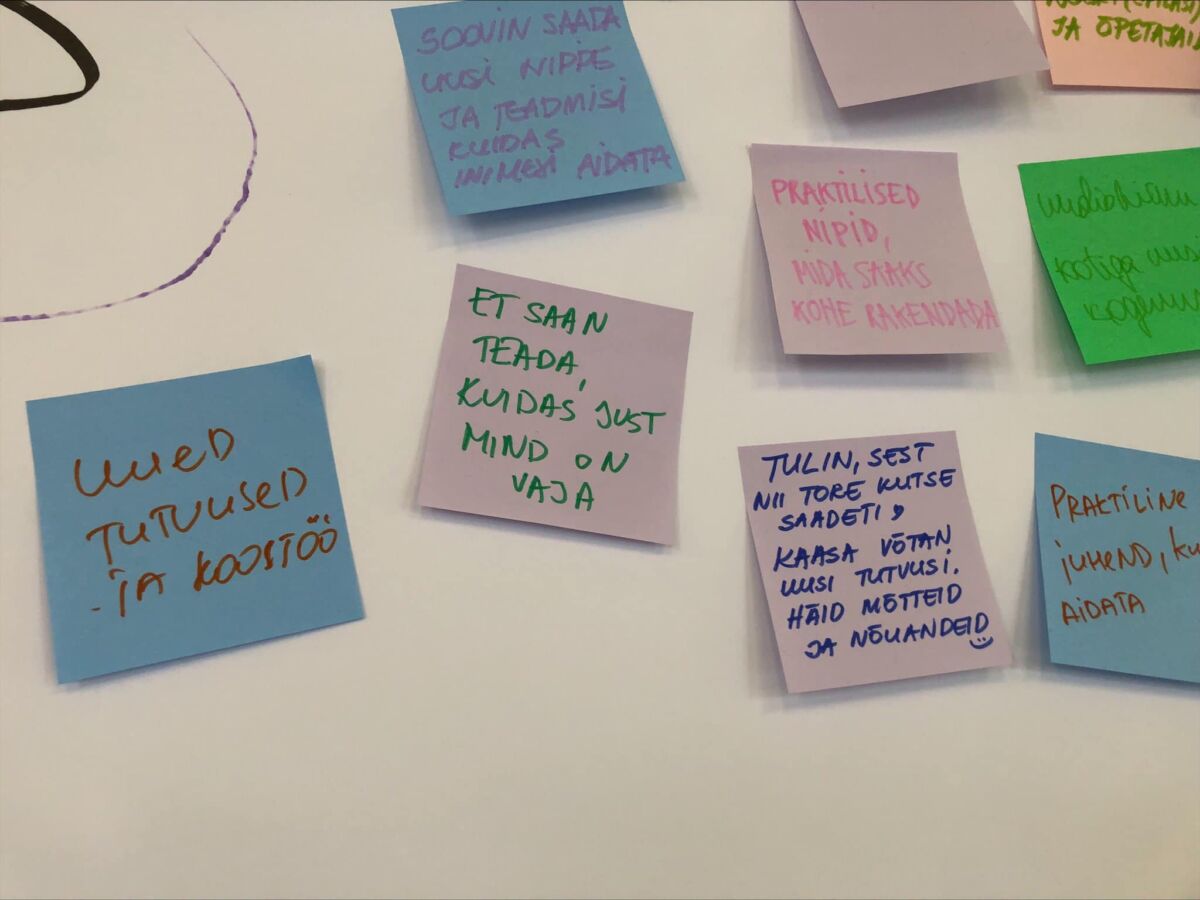 SOOVIN SAADA
UUSI NIPPE
JA TEADMISI
KUIDAS
INIMESI AIDATA
JA ÕPETAJAI
PRAKTILISED
NIPID,
MIDA SAAKS
KOHE RAKENDADA
uusi
ET SAAN
TEADA,
KUIDAS JUST
MIND ON
VAJA
UUED
TUTVUSED
JA KOOSTÖÖ
TULIN, SEST
NII TORE KUTSE
SAADETI
KAASA VÕTAN
UUSI TUTVUSI.
HÄID MÕTTEID
JA NÕUANDEID
PRAKTILINE
JUHEND, KU
AIDATA